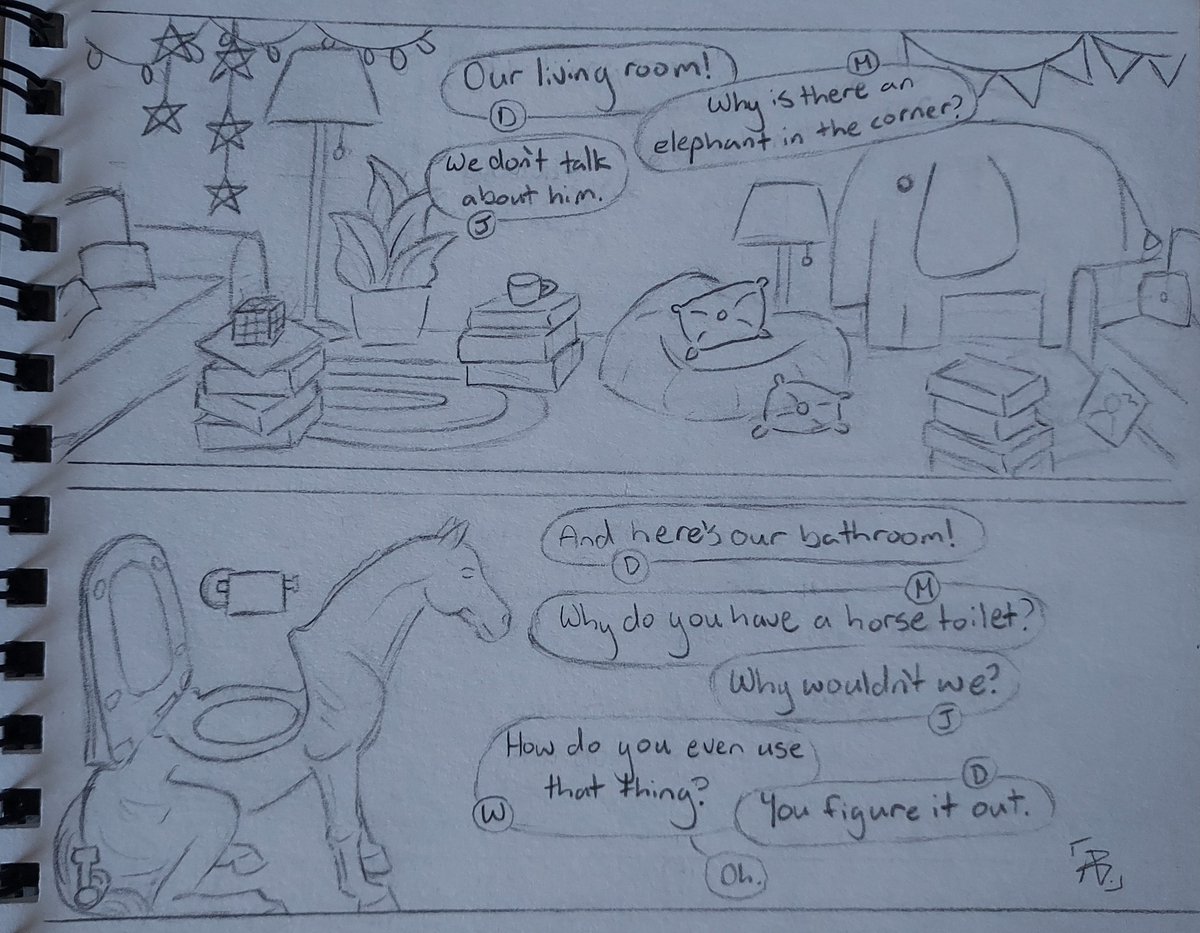 Our living room!
D
M
Why is there an
elephant in the corner?
We don't talk
about him.
J
And here's our bathroom!
D
M
Why do you have a horse toilet?
Why wouldn't we?
J
How do you even use
that thing?
W
D
You figure it out.
Oh.